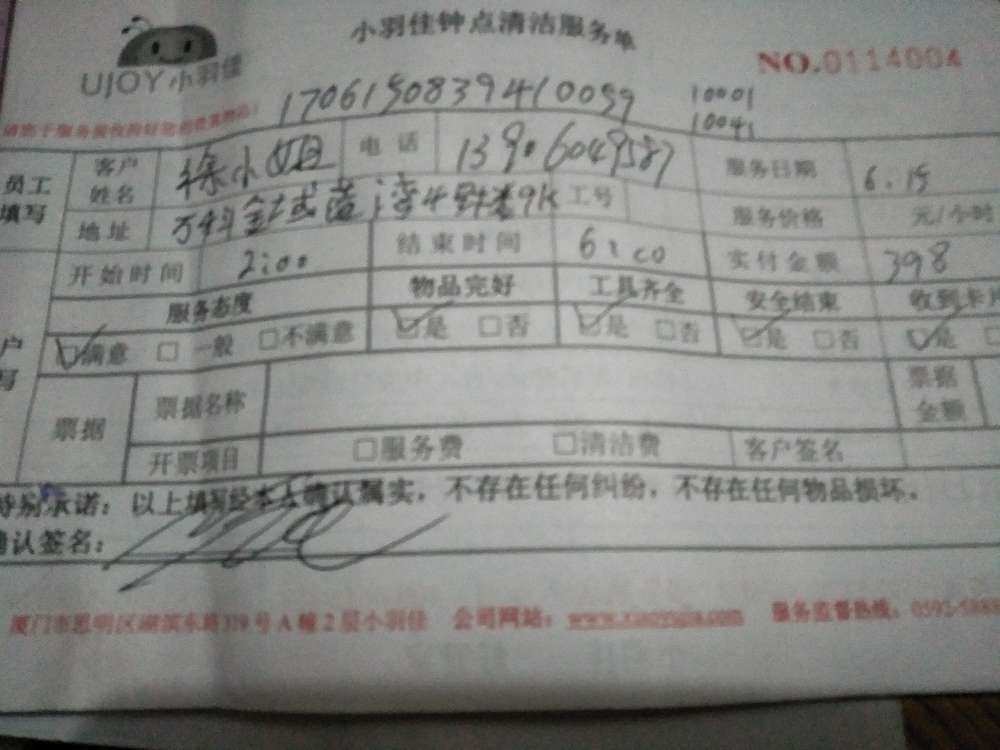 小羽佳钟点清洁服务单
UJOY小羽佳
NO.0114004
1706150839410059 10001
10041
员工填写 客户姓名 徐小姐 电话 服务日期 6.15
地址 万科金域蓝湾 9K 工号 服务价格 元/小时
开始时间 2:00 结束时间 6:00 实付金额 398
服务态度 物品完好 工具齐全 安全结束 收到卡
☑满意 □一般 □不满意 ☑是 □否 ☑是 □否 ☑是 □否 ☑是
票据 票据名称 票据金额
开票项目 □服务费 □清洁费 客户签名
特别承诺：以上填写经本人确认属实，不存在任何纠纷，不存在任何物品损坏。
确认签名：
厦门市思明区湖滨东路319号A幢2层小羽佳 公司网站： 服务监督热线：0592-